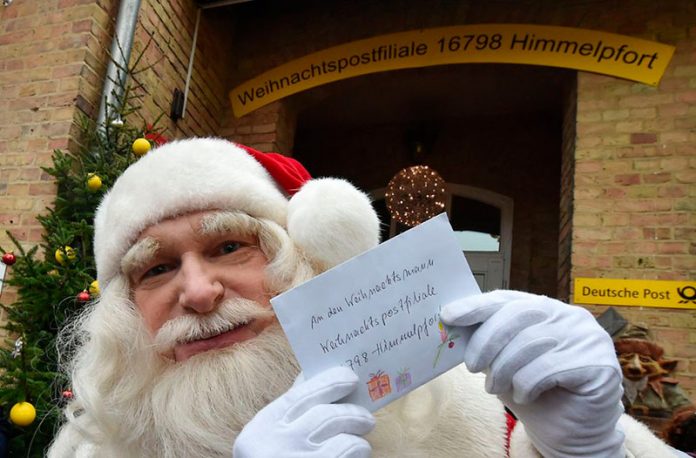 Weihnachtspostfiliale 16798 Himmelpfort
Deutsche Post
An den Weihnachtsmann
Weihnachtspostfiliale
798-Himmelpfor